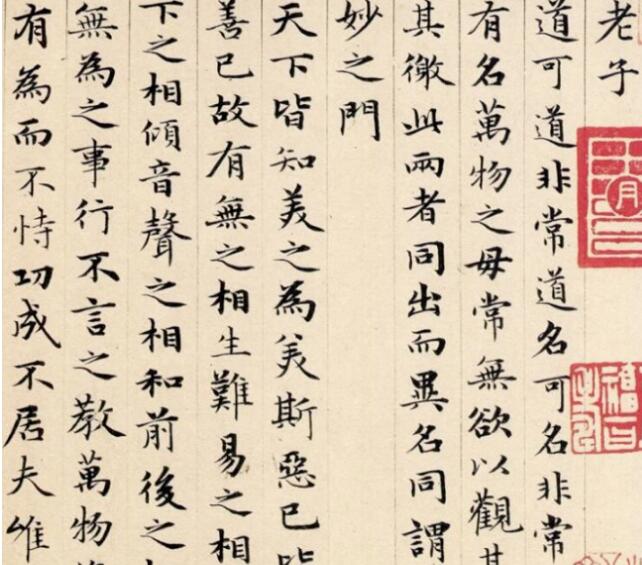 老子
道可道非常道名可名非常
有名萬物之母常無欲以觀其
其徼此兩者同出而異名同謂
妙之門
天下皆知美之為美斯惡已皆
善已故有無之相生難易之相
下之相傾音聲之相和前後之
無為之事行不言之教萬物
有為而不恃功成不居夫惟